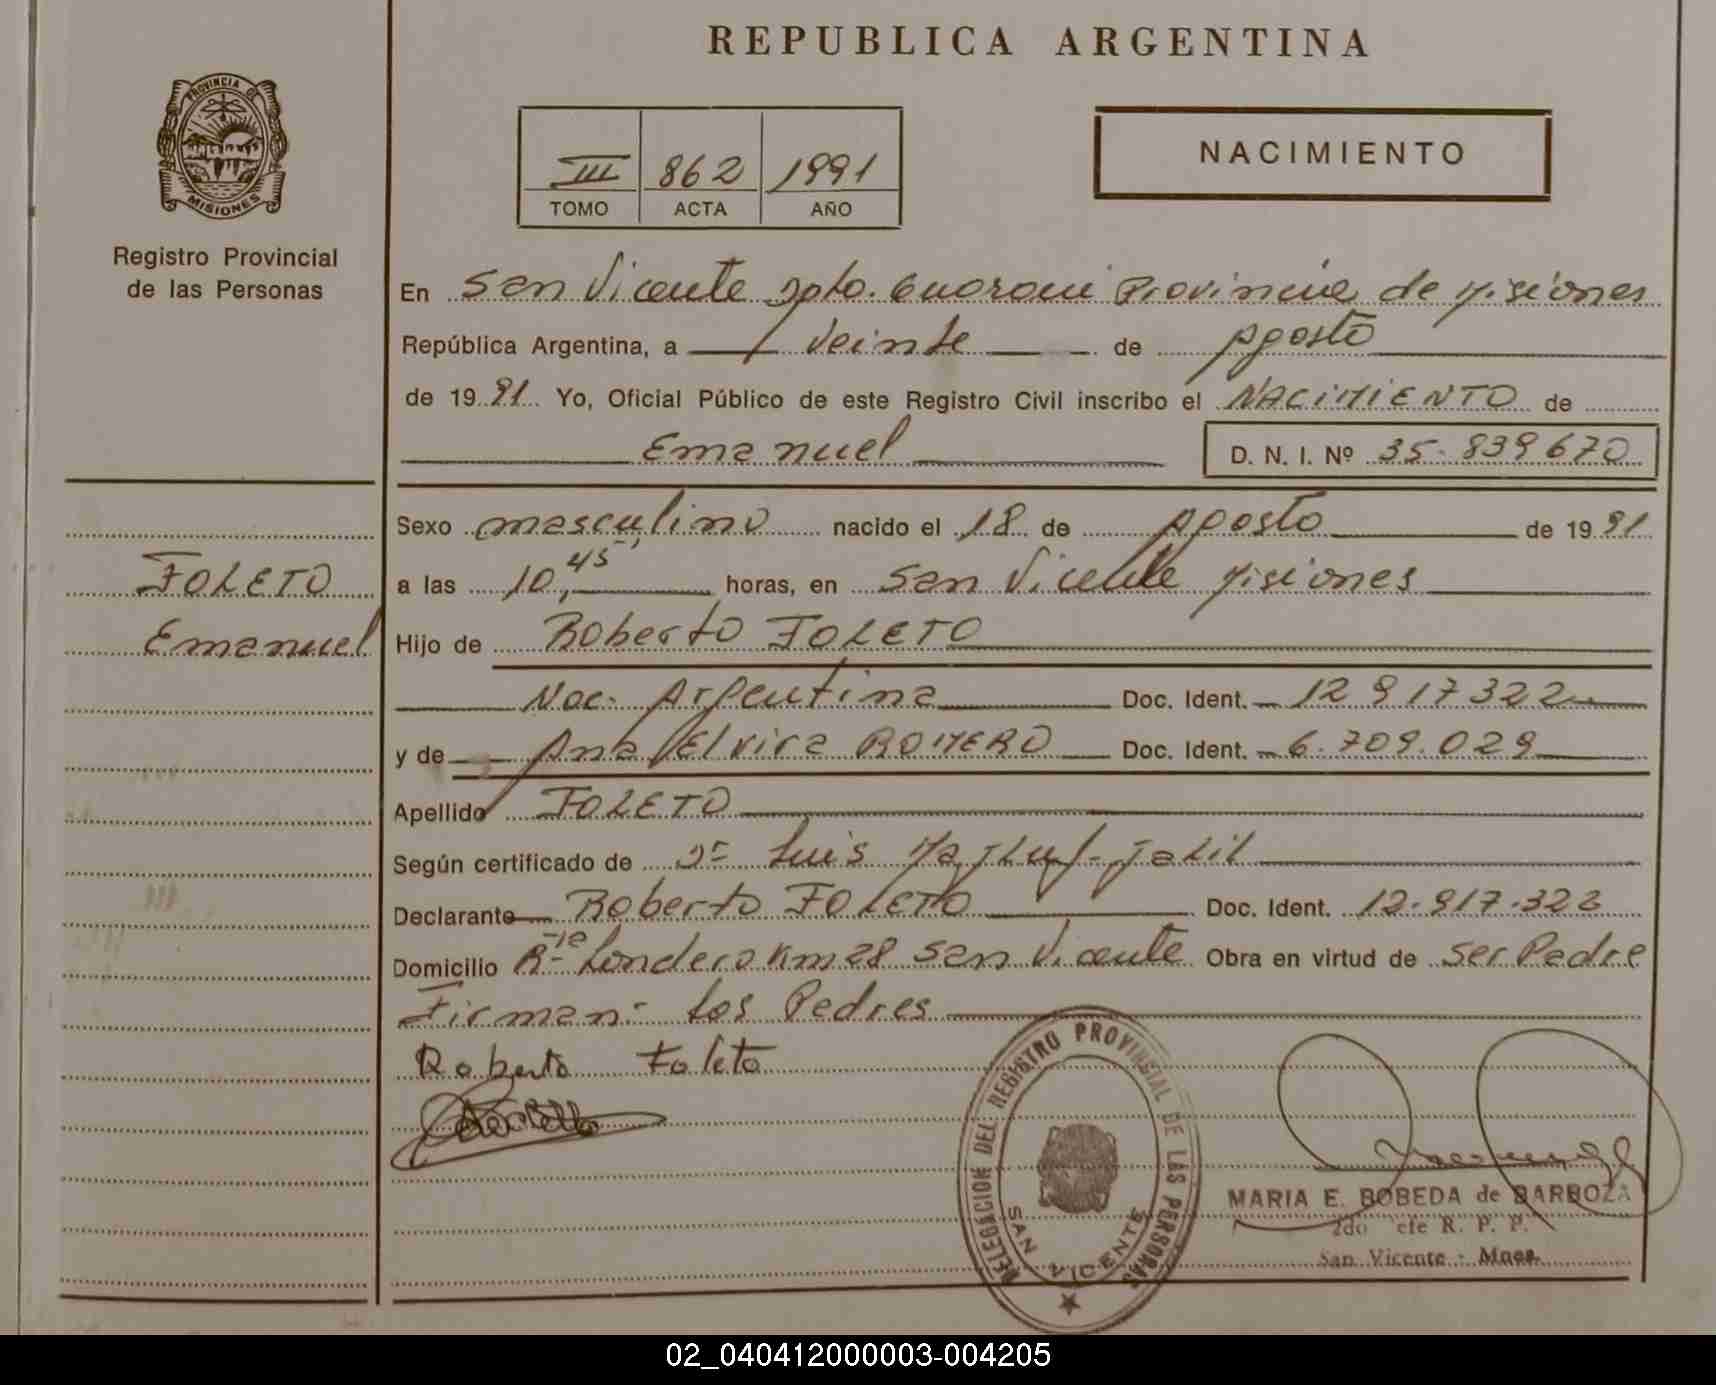 REPUBLICA ARGENTINA
PROVINCIA DE
MISIONES
Registro Provincial
de las Personas
III 862 1991
TOMO ACTA AÑO
NACIMIENTO
En San Vicente Dpto. Guarani Provincia de Misiones
República Argentina, a veinte de Agosto
de 1991 Yo, Oficial Público de este Registro Civil inscribo el NACIMIENTO de
Emanuel D. N. I. Nº 35.839670
Sexo masculino nacido el 18 de Agosto de 1991
FOLETO
Emanuel
a las 10,45' horas, en San Vicente Misiones
Hijo de Roberto FOLETO
Nac. Argentina Doc. Ident. 12917322
y de Ana Elvira ROMERO Doc. Ident. 6.709.029
Apellido FOLETO
Según certificado de Dr Luis
Declarante Roberto FOLETO Doc. Ident. 12.917.322
Domicilio Londero Km 28 San Vicente Obra en virtud de ser Padre
Firman: Los Padres
Roberto Foleto
DELEGACION DEL REGISTRO PROVINCIAL DE LAS PERSONAS
SAN VICENTE
MARIA E. BOBEDA de BARBOZA
2do Jefe R. P. P.
San Vicente - Mnes.
02_040412000003-004205